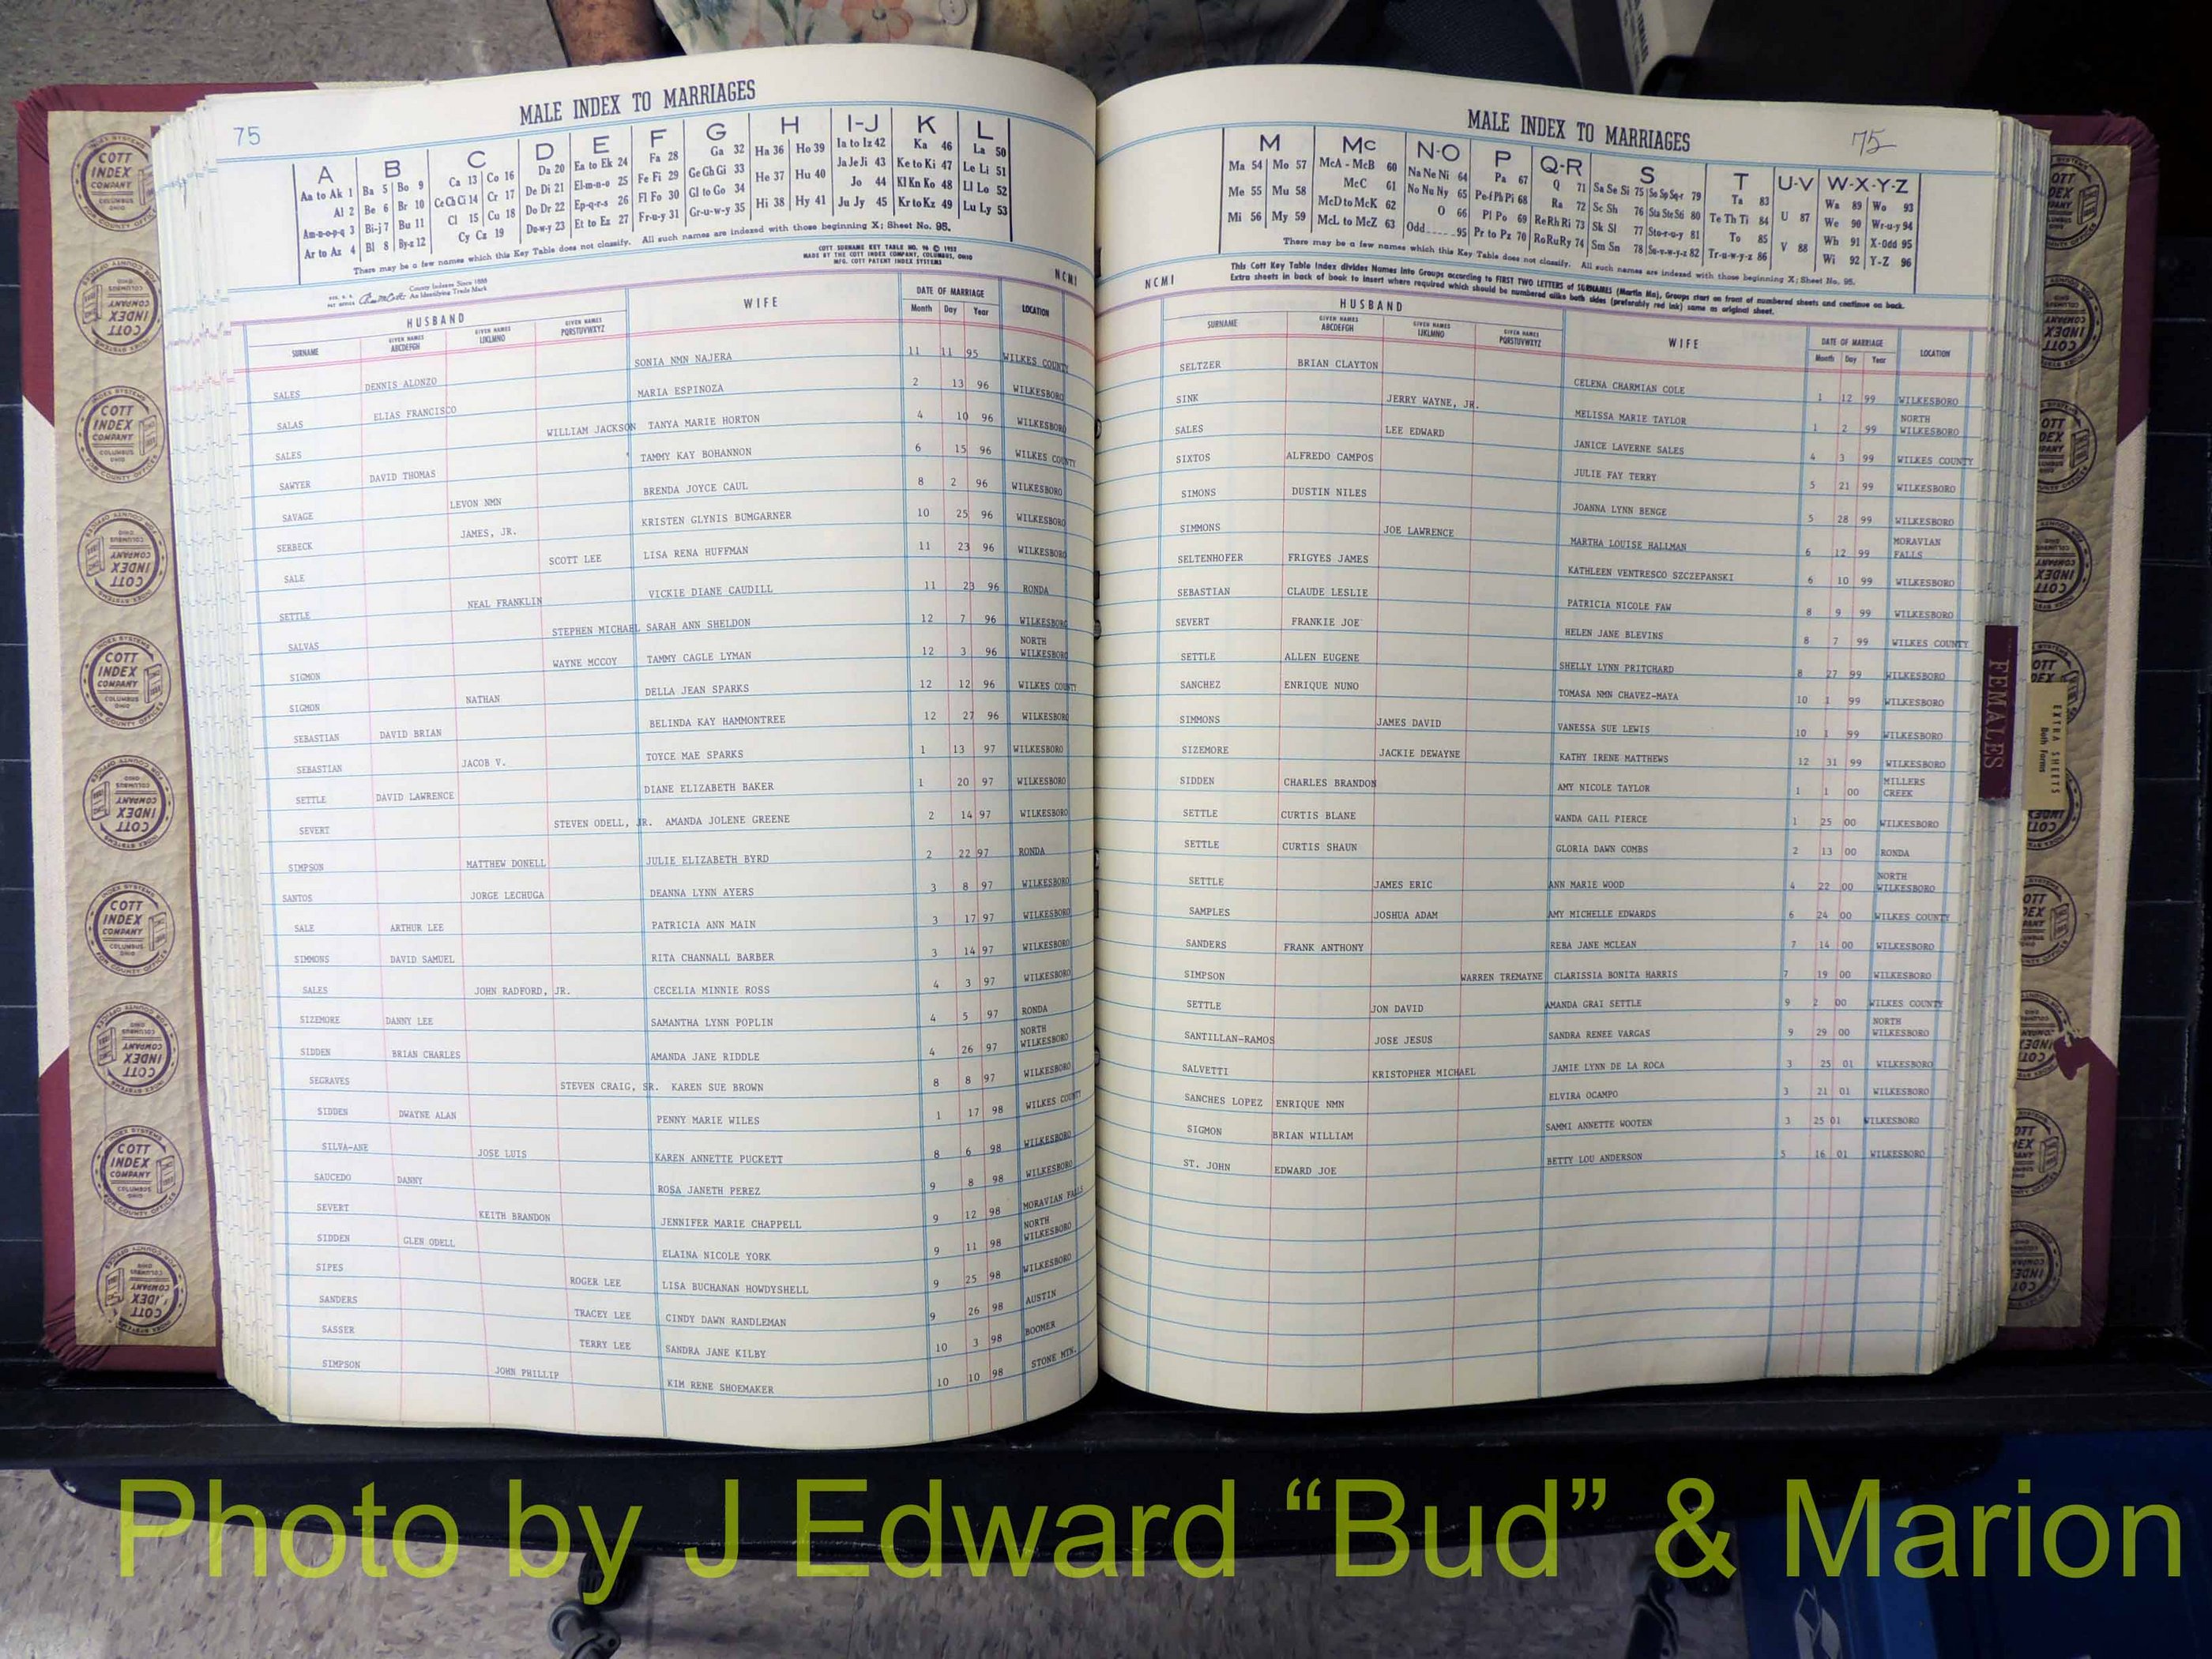 75
MALE INDEX TO MARRIAGES
A B C D E F G H I-J K L
Aa to Ak 1 Ba 5 Bo 9 Ca 13 Co 16 Da 20 Ea to Ek 24 Fa 28 Ga 32 Ha 36 Ho 39 Ia to Iz 42 Ka 46 La 50
Al 2 Be 6 Br 10 Ce Ch Ci 14 Cr 17 De Di 21 El-m-n-o 25 Fe Fi 29 Ge Gh Gi 33 He 37 Hu 40 Ja Je Ji 43 Ke to Ki 47 Le Li 51
Am-n-o-p-q 3 Bi-j 7 Bu 11 Cl 15 Cu 18 Do Dr 22 Ep-q-r-s 26 Fl Fo 30 Gl to Go 34 Hi 38 Hy 41 Jo 44 Kl Kn Ko 48 Ll Lo 52
Ar to Az 4 Bl 8 By-z 12 Cy Cz 19 Du-w-y 23 Et to Ez 27 Fr-u-y 31 Gr-u-w-y 35 Ju Jy 45 Kr to Kz 49 Lu Ly 53
There may be a few names which this Key Table does not classify. All such names are indexed with those beginning X; Sheet No. 95.
COTT SURNAME KEY TABLE NO. 96 © 1952
MADE BY THE COTT INDEX COMPANY, COLUMBUS, OHIO
MFG. COTT PATENT INDEX SYSTEMS
County Indexes Since 1888
An Identifying Trade Mark
NCMI
HUSBAND WIFE DATE OF MARRIAGE LOCATION
SURNAME GIVEN NAMES ABCDEFGH GIVEN NAMES IJKLMNO GIVEN NAMES PQRSTUVWXYZ Month Day Year
SALES DENNIS ALONZO SONIA NMN NAJERA 11 11 95 WILKES COUNTY
SALAS ELIAS FRANCISCO MARIA ESPINOZA 2 13 96 WILKESBORO
SALES WILLIAM JACKSON TANYA MARIE HORTON 4 10 96 WILKESBORO
SAWYER DAVID THOMAS TAMMY KAY BOHANNON 6 15 96 WILKES COUNTY
SAVAGE LEVON NMN BRENDA JOYCE CAUL 8 2 96 WILKESBORO
SERBECK JAMES, JR. KRISTEN GLYNIS BUMGARNER 10 25 96 WILKESBORO
SALE SCOTT LEE LISA RENA HUFFMAN 11 23 96 WILKESBORO
SETTLE NEAL FRANKLIN VICKIE DIANE CAUDILL 11 23 96 RONDA
SALVAS STEPHEN MICHAEL SARAH ANN SHELDON 12 7 96 WILKESBORO
SIGMON WAYNE MCCOY TAMMY CAGLE LYMAN 12 3 96 NORTH WILKESBORO
SIGMON NATHAN DELLA JEAN SPARKS 12 12 96 WILKES COUNTY
SEBASTIAN DAVID BRIAN BELINDA KAY HAMMONTREE 12 27 96 WILKESBORO
SEBASTIAN JACOB V. TOYCE MAE SPARKS 1 13 97 WILKESBORO
SETTLE DAVID LAWRENCE DIANE ELIZABETH BAKER 1 20 97 WILKESBORO
SEVERT STEVEN ODELL, JR. AMANDA JOLENE GREENE 2 14 97 WILKESBORO
SIMPSON MATTHEW DONELL JULIE ELIZABETH BYRD 2 22 97 RONDA
SANTOS JORGE LECHUGA DEANNA LYNN AYERS 3 8 97 WILKESBORO
SALE ARTHUR LEE PATRICIA ANN MAIN 3 17 97 WILKESBORO
SIMMONS DAVID SAMUEL RITA CHANNALL BARBER 3 14 97 WILKESBORO
SALES JOHN RADFORD, JR. CECELIA MINNIE ROSS 4 3 97 WILKESBORO
SIZEMORE DANNY LEE SAMANTHA LYNN POPLIN 4 5 97 RONDA
SIDDEN BRIAN CHARLES AMANDA JANE RIDDLE 4 26 97 NORTH WILKESBORO
SEGRAVES STEVEN CRAIG, SR. KAREN SUE BROWN 8 8 97 WILKESBORO
SIDDEN DWAYNE ALAN PENNY MARIE WILES 1 17 98 WILKES COUNTY
SILVA-ANE JOSE LUIS KAREN ANNETTE PUCKETT 8 6 98 WILKESBORO
SAUCEDO DANNY ROSA JANETH PEREZ 9 8 98 WILKESBORO
SEVERT KEITH BRANDON JENNIFER MARIE CHAPPELL 9 12 98 MORAVIAN FALLS
SIDDEN GLEN ODELL ELAINA NICOLE YORK 9 11 98 NORTH WILKESBORO
SIPES ROGER LEE LISA BUCHANAN HOWDYSHELL 9 25 98 WILKESBORO
SANDERS TRACEY LEE CINDY DAWN RANDLEMAN 9 26 98 AUSTIN
SASSER TERRY LEE SANDRA JANE KILBY 10 3 98 BOOMER
SIMPSON JOHN PHILLIP KIM RENE SHOEMAKER 10 10 98 STONE MTN.
MALE INDEX TO MARRIAGES
75
M Mc N-O P Q-R S T U-V W-X-Y-Z
Ma 54 Mo 57 McA - McB 60 Na Ne Ni 64 Pa 67 Q 71 Sa Se Si 75 So Sp Sq-r 79 Ta 83 U 87 Wa 89 Wo 93
Me 55 Mu 58 McC 61 No Nu Ny 65 Pe-f Ph Pi 68 Ra 72 Sc Sh 76 Sta Ste Sti 80 Te Th Ti 84 V 88 We 90 Wr-u-y 94
Mi 56 My 59 McD to McK 62 O 66 Pl Po 69 Re Rh Ri 73 Sk Sl 77 Sto-r-u-y 81 To 85 Wh 91 X-Odd 95
McL to McZ 63 Odd 95 Pr to Pz 70 Ro Ru Ry 74 Sm Sn 78 Su-v-w-y-z 82 Tr-u-w-y-z 86 Wi 92 Y-Z 96
There may be a few names which this Key Table does not classify. All such names are indexed with those beginning X; Sheet No. 95.
This Cott Key Table Index divides Names into Groups according to FIRST TWO LETTERS of SURNAMES (Martin Ma), Groups start on front of numbered sheets and continue on back.
Extra sheets in back of book to insert where required which should be numbered alike both sides (preferably red ink) same as original sheet.
NCMI
HUSBAND WIFE DATE OF MARRIAGE LOCATION
SURNAME GIVEN NAMES ABCDEFGH GIVEN NAMES IJKLMNO GIVEN NAMES PQRSTUVWXYZ Month Day Year
SELTZER BRIAN CLAYTON CELENA CHARMIAN COLE 1 12 99 WILKESBORO
SINK JERRY WAYNE, JR. MELISSA MARIE TAYLOR 1 2 99 NORTH WILKESBORO
SALES LEE EDWARD JANICE LAVERNE SALES 4 3 99 WILKES COUNTY
SIXTOS ALFREDO CAMPOS JULIE FAY TERRY 5 21 99 WILKESBORO
SIMONS DUSTIN NILES JOANNA LYNN BENGE 5 28 99 WILKESBORO
SIMMONS JOE LAWRENCE MARTHA LOUISE HALLMAN 6 12 99 MORAVIAN FALLS
SELTENHOFER FRIGYES JAMES KATHLEEN VENTRESCO SZCZEPANSKI 6 10 99 WILKESBORO
SEBASTIAN CLAUDE LESLIE PATRICIA NICOLE FAW 8 9 99 WILKESBORO
SEVERT FRANKIE JOE HELEN JANE BLEVINS 8 7 99 WILKES COUNTY
SETTLE ALLEN EUGENE SHELLY LYNN PRITCHARD 8 27 99 WILKESBORO
SANCHEZ ENRIQUE NUNO TOMASA NMN CHAVEZ-MAYA 10 1 99 WILKESBORO
SIMMONS JAMES DAVID VANESSA SUE LEWIS 10 1 99 WILKESBORO
SIZEMORE JACKIE DEWAYNE KATHY IRENE MATTHEWS 12 31 99 WILKESBORO
SIDDEN CHARLES BRANDON AMY NICOLE TAYLOR 1 1 00 MILLERS CREEK
SETTLE CURTIS BLANE WANDA GAIL PIERCE 1 25 00 WILKESBORO
SETTLE CURTIS SHAUN GLORIA DAWN COMBS 2 13 00 RONDA
SETTLE JAMES ERIC ANN MARIE WOOD 4 22 00 NORTH WILKESBORO
SAMPLES JOSHUA ADAM AMY MICHELLE EDWARDS 6 24 00 WILKES COUNTY
SANDERS FRANK ANTHONY REBA JANE MCLEAN 7 14 00 WILKESBORO
SIMPSON WARREN TREMAYNE CLARISSIA BONITA HARRIS 7 19 00 WILKESBORO
SETTLE JON DAVID AMANDA GRAI SETTLE 9 2 00 WILKES COUNTY
SANTILLAN-RAMOS JOSE JESUS SANDRA RENEE VARGAS 9 29 00 NORTH WILKESBORO
SALVETTI KRISTOPHER MICHAEL JAMIE LYNN DE LA ROCA 3 25 01 WILKESBORO
SANCHES LOPEZ ENRIQUE NMN ELVIRA OCAMPO 3 21 01 WILKESBORO
SIGMON BRIAN WILLIAM SAMMI ANNETTE WOOTEN 3 25 01 WILKESBORO
ST. JOHN EDWARD JOE BETTY LOU ANDERSON 5 16 01 WILKESBORO
FEMALES
EXTRA SHEETS
Both Forms
COTT INDEX COMPANY COLUMBUS OHIO
INDEX SYSTEMS FOR COUNTY OFFICES
Photo by J Edward “Bud” & Marion